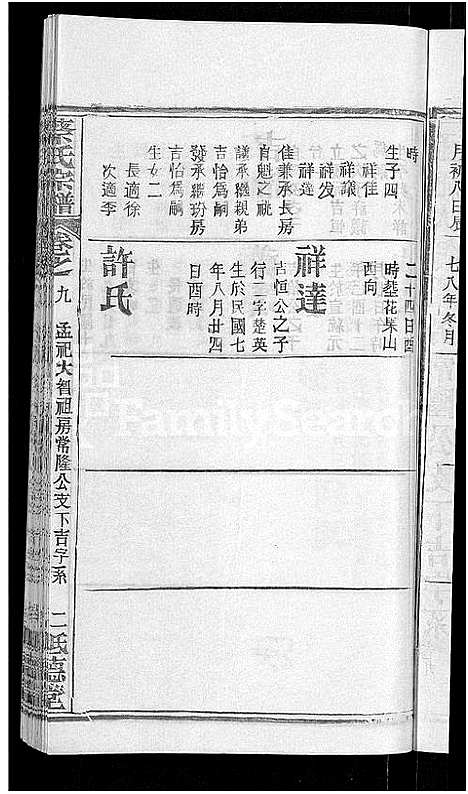 月初八日辰
七八年冬月
時
生子四
祥佳
祥議
祥发
祥達
佳兼承長房
自魁之祧
議承繼親弟
吉怡爲嗣
發承繼玢房
吉怡爲嗣
生女二
長適徐
次適李
二十四日酉
時塟花果山
酉向
祥達
吉恒公之子
行二字楚英
生於民國七
年八月廿四
日酉時
許氏
蔡氏宗譜
卷之九
孟祀大智祖房常隆公支下吉字系
二
FamilySearch